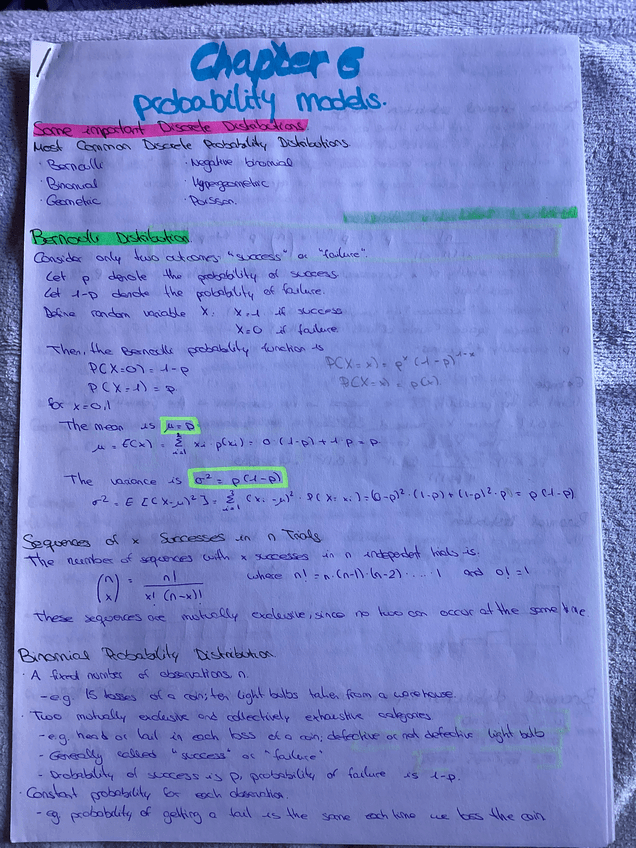 Chapter 6
probability models.
Some important Discrete Distributions
Most Common Discrete Probability Distributions
· Bernoulli · Negative binomial
· Binomial · Hypergeometric
· Geometric · Poisson
Bernoulli Distribution
Consider only two outcomes: "success" or "failure".
Let p denote the probability of success.
Let 1-p denote the probability of failure.
Define random variable X: X=1 if success
X=0 if failure.
Then, the Bernoulli probability function is
P(X=0) = 1-p
P(X=x) = p^x (1-p)^{1-x}
P(X=1) = p
P(X=x) = p(x).
for x=0,1
The mean is μ=p
μ = E(X) = Σ xᵢ p(xᵢ) = 0·(1-p)+1·p = p
The variance is σ² = p(1-p)
σ² = E[(X-μ)²] = Σ (xᵢ-μ)² · P(X=xᵢ) = (0-p)²·(1-p)+(1-p)²·p = p(1-p)
Sequences of x Successes in n Trials
The number of sequences with x successes in n independent trials is:
(n x) = n! / x!(n-x)! where n! = n·(n-1)·(n-2)·....·1 and 0! = 1
These sequences are mutually exclusive, since no two can occur at the same time.
Binomial Probability Distribution
· A fixed number of observations, n.
- e.g. 15 tosses of a coin; ten light bulbs taken from a warehouse.
· Two mutually exclusive and collectively exhaustive categories
- e.g. head or tail in each toss of a coin; defective or not defective light bulb
- Generally called "success" or "failure"
- Probability of success is p, probability of failure is 1-p.
· Constant probability for each observation
- eg probability of getting a tail is the same each time we toss the coin